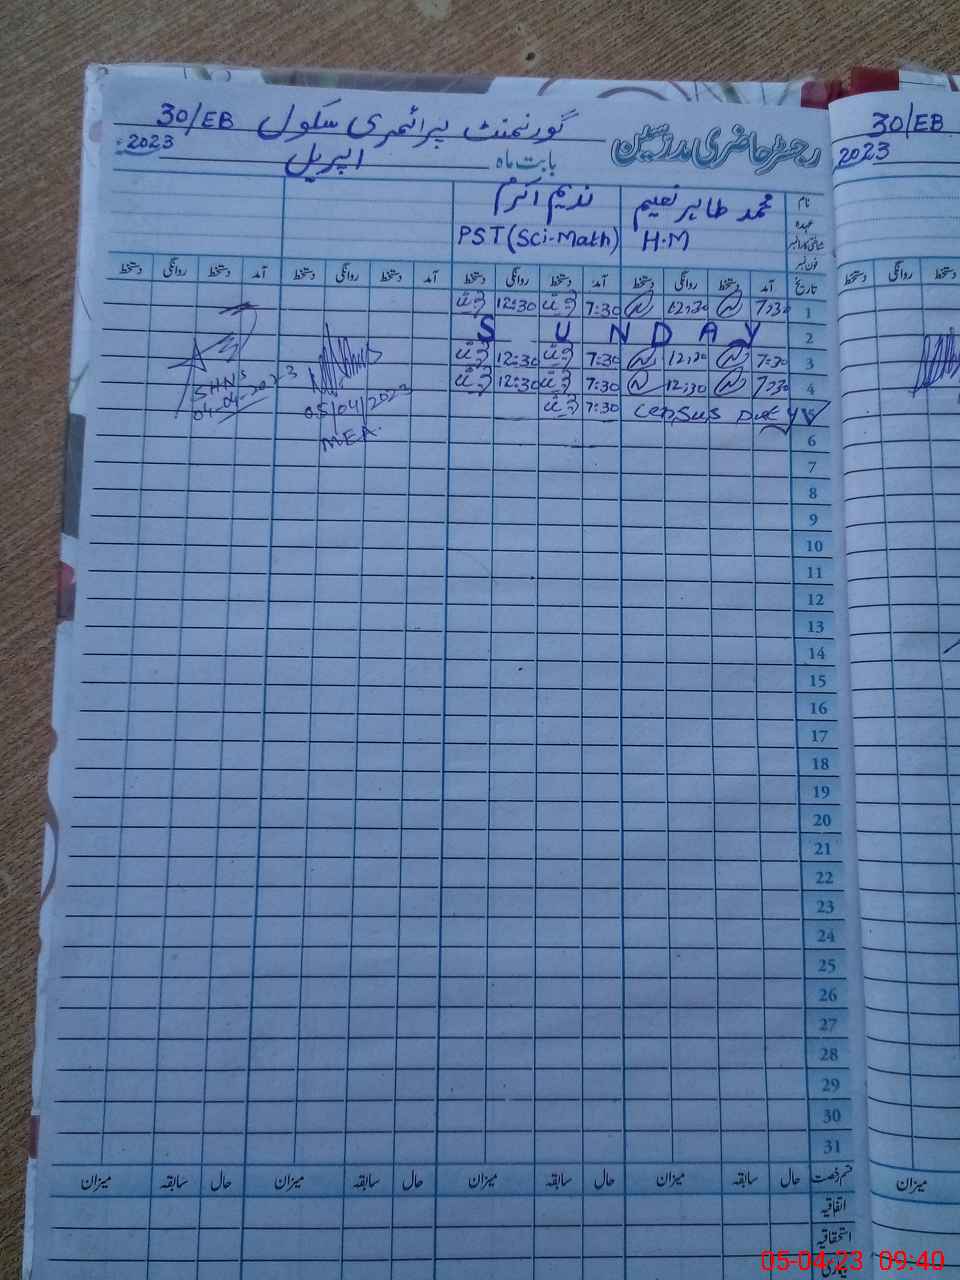 گورنمنٹ پرائمری سکول 30/EB
رجسٹر حاضری مدرسین
بابت ماہ اپریل 2023
نام محمد طاہر نعیم ندیم اکرم
عہدہ H.M PST (Sci-Math)
فون نمبر
تاریخ آمد دستخط روانگی دستخط آمد دستخط روانگی دستخط آمد دستخط روانگی دستخط آمد دستخط روانگی دستخط
1 7:30 12:30 7:30 12:30
2 SUNDAY
3 7:30 12:30 7:30 12:30
4 7:30 12:30 7:30 12:30
5 Census Duty 7:30
SHNS
04-04-2023
05/04/2023
MEA.
6
7
8
9
10
11
12
13
14
15
16
17
18
19
20
21
22
23
24
25
26
27
28
29
30
31
قسم رخصت حال سابقہ میزان حال سابقہ میزان حال سابقہ میزان حال سابقہ میزان
اتفاقیہ
استحقاقیہ
بیماری
30/EB
2023
دستخط روانگی دستخط
میزان
05-04-23 09:40